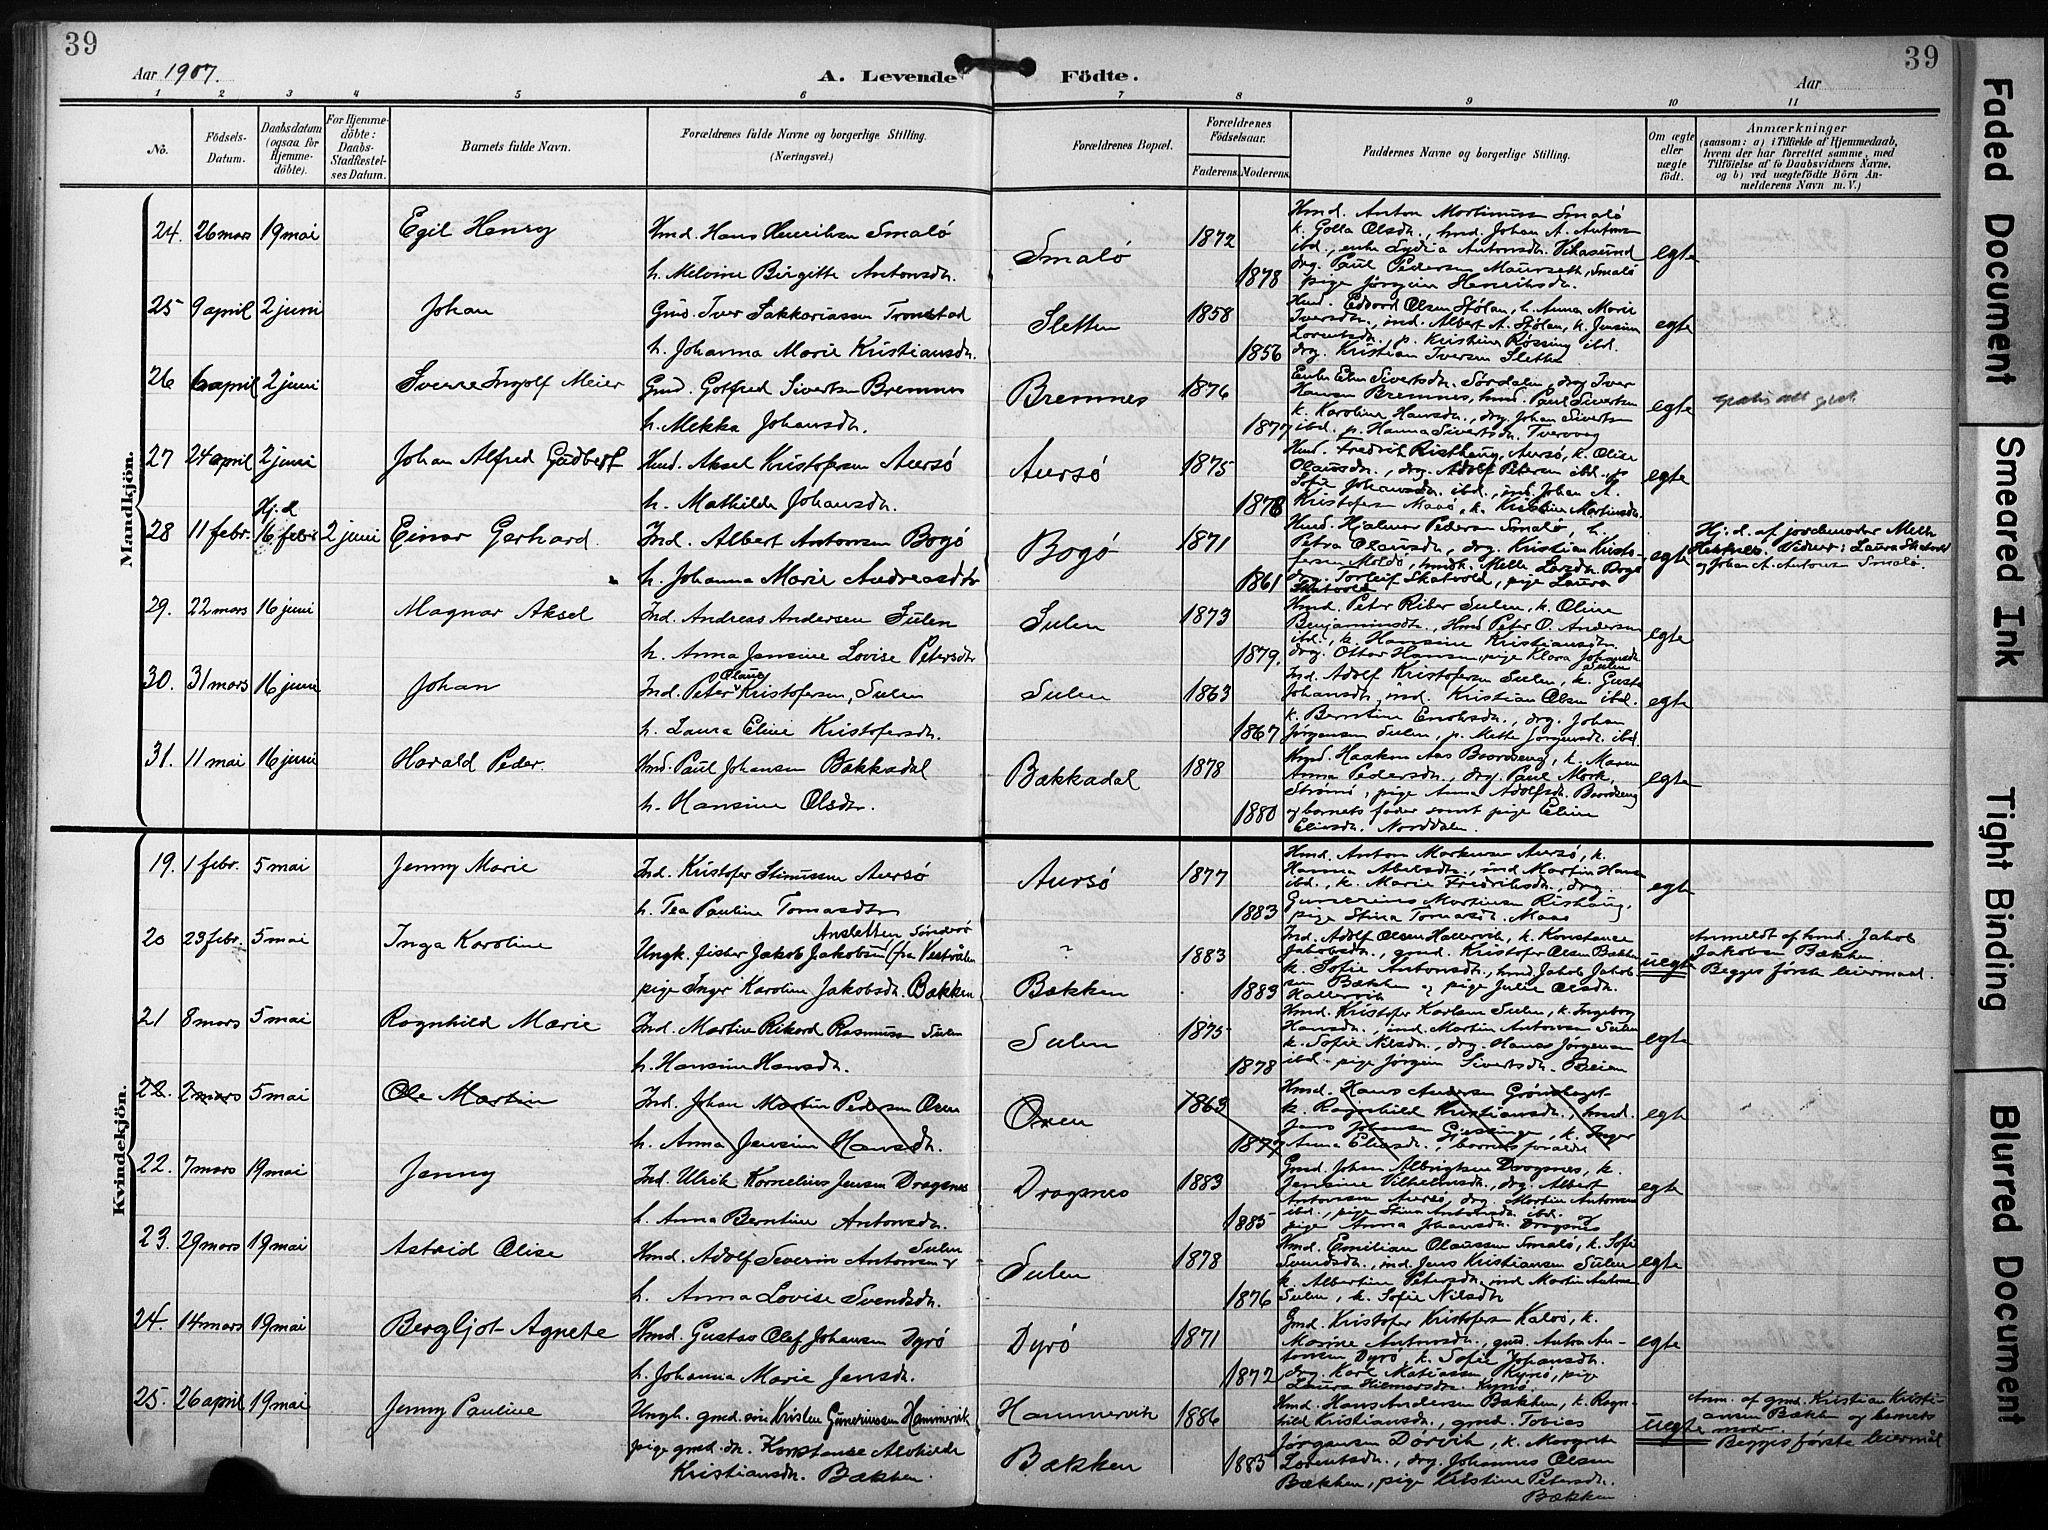 39
39
Aar 1907.
A. Levende Födte.
Aar
1 2 3 4 5 6 7 8 9 10 11
No.
Födsels-
Datum.
Daabsdatum
(ogsaa for
Hjemme-
döbte).
For Hjemme-
döbte:
Daabs-
Stadfæstel-
ses Datum.
Barnets fulde Navn.
Forældrenes fulde Navne og borgerlige Stilling.
(Næringsvei.)
Forældrenes Bopæl.
Forældrenes
Födselsaar.
Faderens. Moderens.
Faddernes Navne og borgerlige Stilling.
Om ægte
eller
uægte
födt.
Anmærkninger
(saasom: a) i Tilfælde af Hjemmedaab,
hvem der har forrettet samme, med
Tilföielse af to Daabsvidners Navne,
og b) ved uægtefödte Börn An-
melderens Navn m. V.)
Mandkjön.
24. 26 mars 19 mai Egil Henry Hmd. Hans Henriksen Smalö
h. Melvine Birgitte Antonsdr.
Smalö 1872 1878
Hmd. Anton Mortinussen Smalö
k. Golla Olsdr., hmd. Johan A. Antons
ibd., enke Lydia Antonsdr. Vikasund
drg. Paul Pedersen Maurseth, Smalö
pige Jørgine Henriksdr.
egte
25 9 april 2 juni Johan Gmd. Iver Sakkariassen Tronstad
h. Johanna Marie Kristiansdr.
Sletten 1858 1856
Hmd. Edvard Olsen Sjölan, h. Anna Marie
Iversdr., ind. Albert A. Sjölan, k. Jensine
Lorentsdr., p. Kristine Røssing ibd.
drg. Kristian Iversen Sletten
egte
26 6 april 2 juni Sverre Ingolf Meier Gmd. Gotfred Sivertsen Bremnes
h. Mekka Johansdr.
Bremnes 1876 1877
Enke Elen Sivertsdr. Sørdalen, drg. Iver
Hansen Bremnes, hmd. Paul Sivertsen
k. Karoline Hansdr., drg. Johan Sivertsen
ibd. p. Hanna Sivertsdr. Tvervaag
egte
27 24 april 2 juni Johan Alfred Gudbert Hmd. Aksel Kristofersen Aursö
h. Mathilde Johansdr.
Aursö 1875 1876
Hmd. Fredrik Risthaug, Aursö, k. Oline
Olausdr., drg. Adolf Petersen ibd., p.
Sofie Johansdr. ibd., ind. Johan A.
Kristofersen Maaö, k. Kristine Martinsdr.
egte
28 11 febr. Hj. d. 16 febr. 2 juni Einar Gerhard. Ind. Albert Antonsen Bogö
h. Johanna Marie Andreasdtr
Bogö 1871 1861
Hmd. Hjalmar Pedersen Smalö, h.
Petra Olausdr., drg. Kristian Kristo-
fersen Moldö, hmdk. Mette Larsdr. Bogö
drg. Torleif Skatvold, pige Laura
Skatvold
egte
Hj. d. af jordemoder Mette
Vidner: Laura Skatvold
og Johan A. Antons Smalö.
29. 22 mars 16 juni Magnar Aksel Ind. Andreas Andersen Sulen
h. Anna Jensine Lovise Petersdtr
Sulen 1873 1879.
Hmd. Peter Riber Sulen, k. Oline
Benjaminsdr., Hmd Peter O. Andersen
ibd., k. Hansine Kristiansdr.
drg. Ottar Hansen, pige Klara Johansdr.
Sulen
egte
30. 31 mars 16 juni Johan Ind. Peter Olaus Kristofersen, Sulen
h. Laura Eline Kristofersdr.
Sulen 1863 1867
Ind. Adolf Kristofersen Sulen, k. Gusta
Johansdr., ind. Kristian Olsen ibd.
k. Berntine Enoksdr., drg. Johan
Jørgensen Sulen, p. Mette Jørgensdr. ibd.
egte
31. 11 mai 16 juni Harald Peder. Hmd. Paul Johansen Bækkadal
h. Hansine Olsdr.
Bækkadal 1878 1880
Hmd. Haakon Aas Baardseng, k. Maren
Anna Pedersdr., drg. Paul Mork,
Strömö, pige Anna Adolfsdr. Baardseng
og barnets fader samt pige Eline
Eliasdr. Norddalen.
egte
Kvindekjön.
19. 1 febr. 5 mai Jenny Marie Ind. Kristofer Stinussen Aursö
h. Tea Pauline Tomasdtr
Aursö 1877 1883
Hmd. Anton Markussen Aursö, k.
Hanna Abelsdr., ind Martin Hans
ibd., k. Marie Fredriksdr., drg.
Gunerius Martinsen Rishaug,
pige Stina Tomasdr. Maaö
egte
20 23 febr. 5 mai Inga Karoline Ungk. fisker Jakob Jakobsen (fra Vestraalen
Ansletten Sunderö
pige Inger Karoline Jakobsdr. Bækken
Bækken 1883 1883
Ind. Adolf Olsen Hallervik, k. Konstanse
Jakobsdr., gmd. Kristofer Olsen Bækken
k. Sofie Antonsdr., hmd Jakob Jakob
sen Bækken og pige Julie Olsdr.
Hallervik
uegte
Anmeldt af hmd. Jakob
Jakobsen Bækken.
Begges første leiermaal.
21 8 mars 5 mai Ragnhild Marie Ind. Martin Rikard Rasmussen Sulen
h. Hansine Hansdr.
Sulen 1875 1878
Hmd. Kristofer Karlsen Sulen, k. Ingeborg
Hansdr., ind. Martin Antonsen Sulen
k. Sofie Nilsdr., drg. Hans Jørgensen
ibd. pige Jørgine Sivertsdr. Beien
egte
22. 2 mars 5 mai Ole Martin Ind. Johan Martin Pedersen Oxen
h. Anna Jensine Hansdr.
Oxen 1863 1877
Hmd. Hans Andersen Grønskaget
k. Ragnhild Kristiansdr., hmd.
Jens Johansen Gjessingen, k. Inger
Anna Eliasdr., barnets forældre
egte
22. 7 mars 19 mai Jenny Ind. Ulrik Kornelius Jensen Dragsnes
h. Anna Berntine Antonsdr.
Dragsnes 1883 1885
Gmd. Johan Albrigtsen Dragsnes, k.
Jensine Vilhelmsdr., drg. Albert
Antonsen Aursö, drg. Martin Antonsen
ibd., pige Stina Antonsdr. ibd. og
pige Anna Johansdr. Dragsnes
egte
23. 29 mars 19 mai Astrid Elise Hmd. Adolf Severin Antonsen Sulen
h. Anna Lovise Svendsdr.
Sulen 1878 1876
Hmd. Emilian Olaussen Smalö, k. Sofie
Svendsdr., ind. Jens Kristiansen Sulen
k. Albertine Petersdr., ind Martin Antons
Sulen, k. Sofie Nilsdr
egte
24. 14 mars 19 mai Bergljot Agnete Hmd. Gustav Olaf Johansen Dyrö
h. Johanna Marie Jensdr.
Dyrö 1871 1872
Gmd. Kristofer Kristofersen Kalvö, k.
Marine Antonsdr., gmd. Anton An-
tonsen Dyrö, k. Sofie Johansdr.
drg. Karl Matiassen Kyrö, pige
Laura Hilmarsdr. Kyrö.
egte
25. 26 april 19 mai Jenny Pauline Ungk. gmd. søn Kristen Gunerinssen Hammervik
pige gmd. dr. Konstanse Alvhilde
Kristiansdr. Bækken.
Hammervik
Bækken
1886 1883
Hmd. Hans Andersen Bækken, k. Ragn-
hild Kristiansdr., gmd. Tobias
Jørgensen Dørvik, k. Margrete
Lorentsdr., drg. Johannes Olsen
Bækken, pige Kristine Petersdr.
Bækken.
uegte
Anm. af gmd. Kristian Kristi-
ansen Bækken og barnets
moder.
Begges første leiermål
Faded Document
Smeared Ink
Tight Binding
Blurred Document